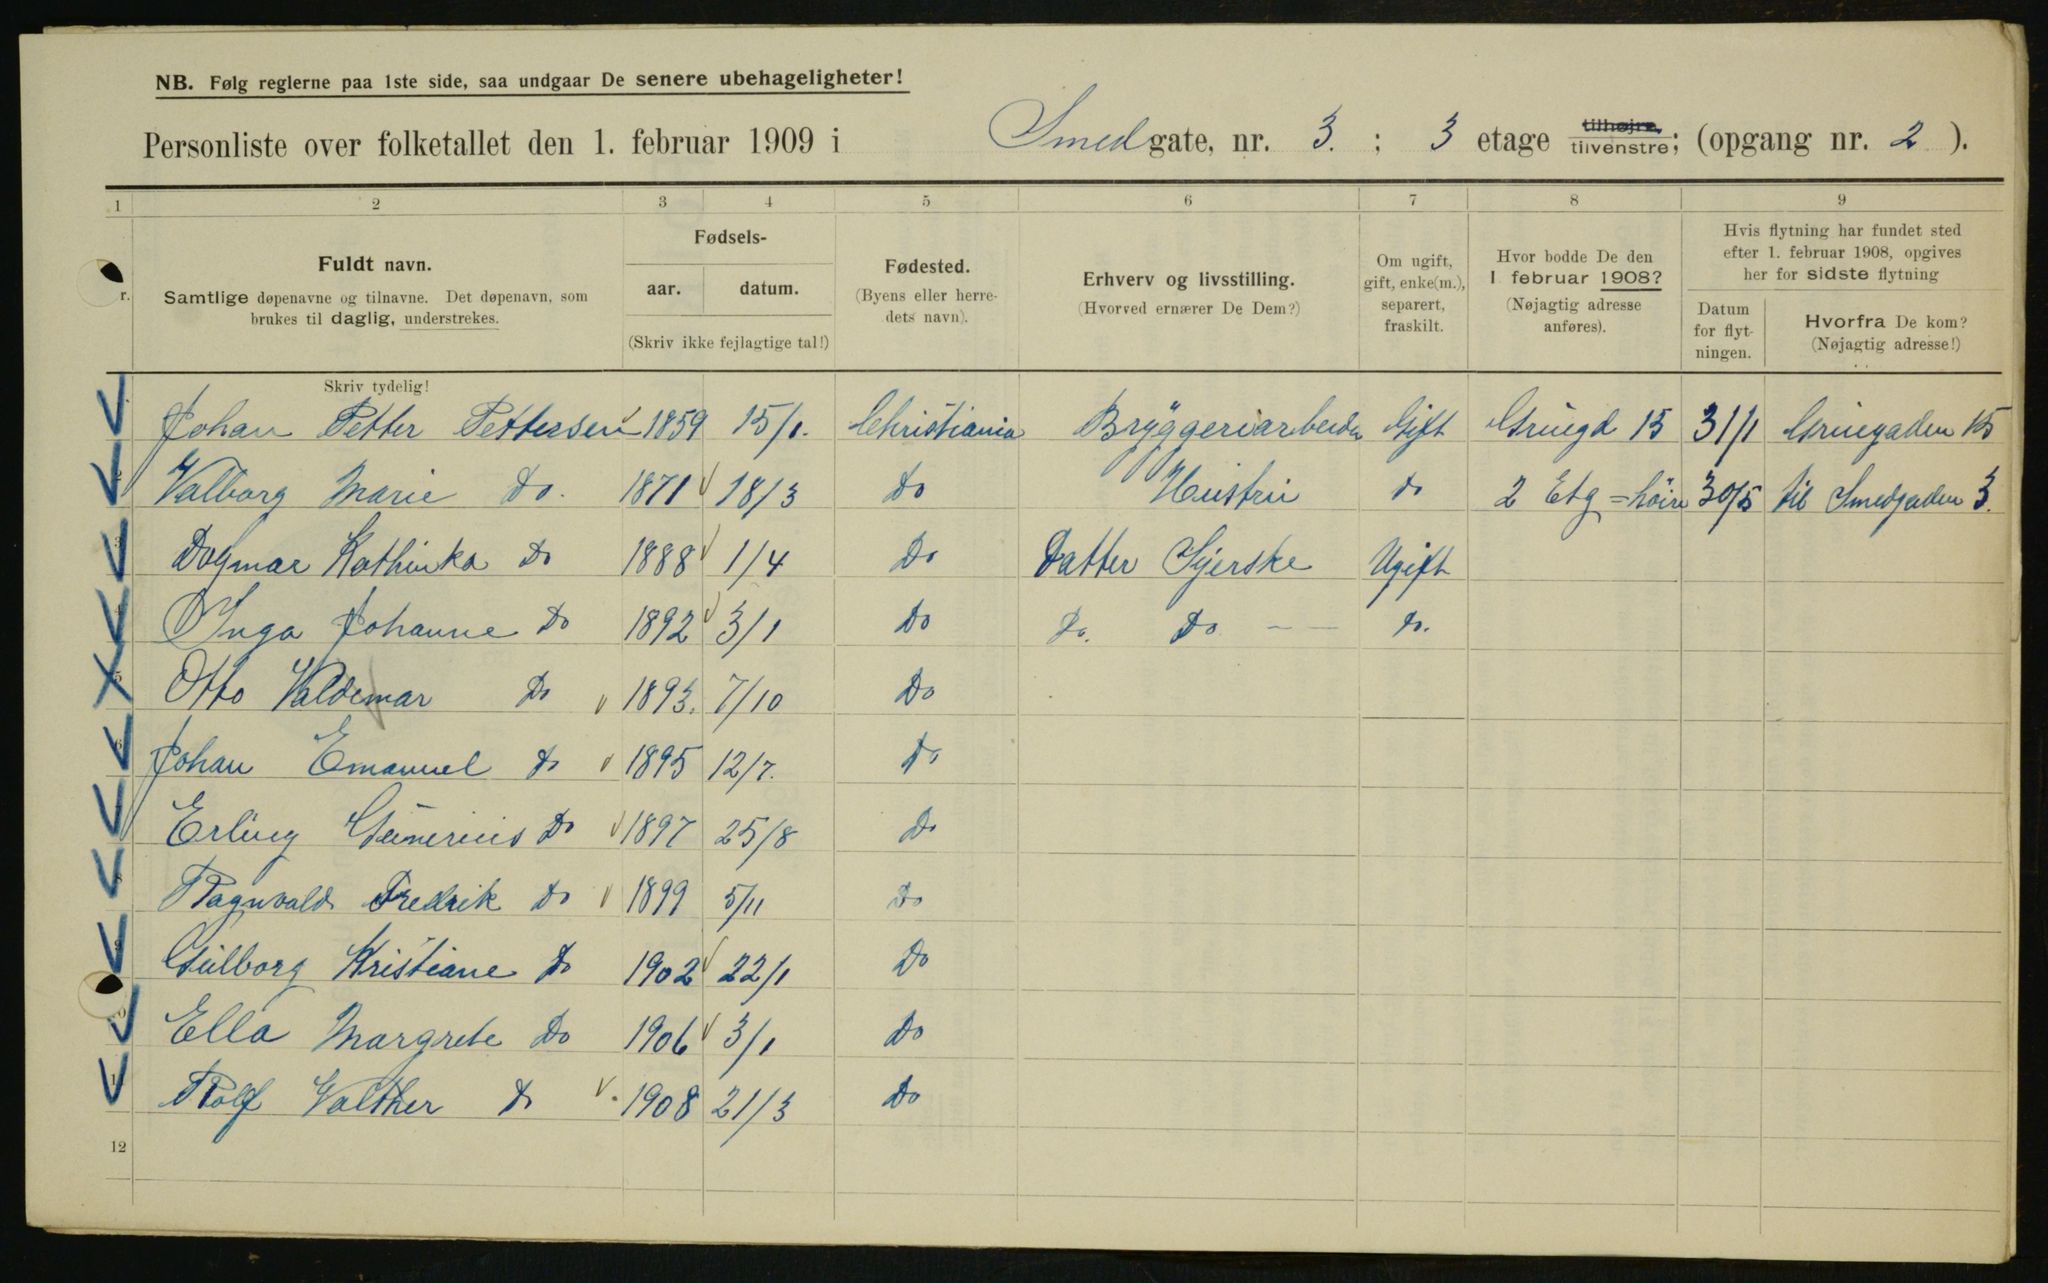 NB. Følg reglerne paa 1ste side, saa undgaar De senere ubehageligheter!
Personliste over folketallet den 1. februar 1909 i Smedgate, nr. 3. ; 3 etage tilhøjre, tilvenstre; (opgang nr. 2 ).
1 2 3 4 5 6 7 8 9
Fuldt navn.
Samtlige døpenavne og tilnavne. Det døpenavn, som
brukes til daglig, understrekes.
Fødsels-
aar. datum.
(Skriv ikke fejlagtige tal!)
Fødested.
(Byens eller herre-
dets navn).
Erhverv og livsstilling.
(Hvorved ernærer De Dem?)
Om ugift,
gift, enke(m.),
separert,
fraskilt.
Hvor bodde De den
1. februar 1908?
(Nøjagtig adresse
anføres).
Hvis flytning har fundet sted
efter 1. februar 1908, opgives
her for sidste flytning
Datum
for flyt-
ningen.
Hvorfra De kom?
(Nøjagtig adresse!)
Skriv tydelig!
Johan Petter Pettersen 1859 15/1. Christiania Bryggeriarbeider Gift Grüngd 15 31/1 Grüngaden 15
Valborg Marie Do. 1871 18/3 Do Hustru do 2 Etg = höire 30/5 til Smedgaden 3.
3 Dagmar Kathinka Do 1888 1/4 Do Datter Syerske Ugift
4 Inga Johanne Do 1892 3/1 Do Do. Do — — Do.
5 Otto Valdemar Do 1893. 7/10 Do
6 Johan Emanuel Do 1895 12/7. Do
7 Erling Do 1897 25/8 Do
8 Ragnvald Fredrik Do 1899 5/11 Do
9 Gülborg Kristiane Do 1902 22/1 Do
10 Ella Margrete Do 1906 3/1 Do
11 Rolf Valther Do 1908 21/3 Do
12